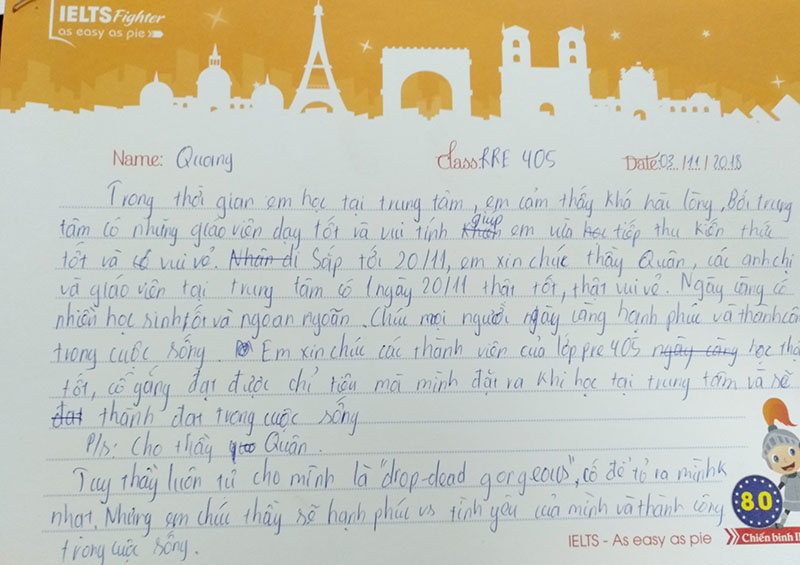 IELTS Fighter
as easy as pie
Name: Quang Class: PRE 405 Date: 03/11/2018
Trong thời gian em học tại trung tâm, em cảm thấy khá hài lòng. Bởi trung
tâm có những giáo viên dạy tốt và vui tính giúp em vừa học tiếp thu kiến thức
tốt và có vui vẻ. Nhân dị Sắp tới 20/11, em xin chúc thầy Quân, các anh chị
và giáo viên tại trung tâm có 1 ngày 20/11 thật tốt, thật vui vẻ. Ngày càng có
nhiều học sinh tốt và ngoan ngoãn. Chúc mọi người ngày càng hạnh phúc và thành cô
trong cuộc sống. Em xin chúc các thành viên của lớp pre 405 ngày càng học thậ
tốt, cố gắng đạt được chỉ tiêu mà mình đặt ra khi học tại trung tâm và sẽ
đạt thành đạt trong cuộc sống
P/s: Cho thầy Quân.
Tuy thầy luôn tự cho mình là "drop-dead gorgeous", cố để tỏ ra mình k
nhạt. Nhưng em chúc thầy sẽ hạnh phúc vs tình yêu của mình và thành công
trong cuộc sống.
8.0
IELTS - As easy as pie
Chiến binh I